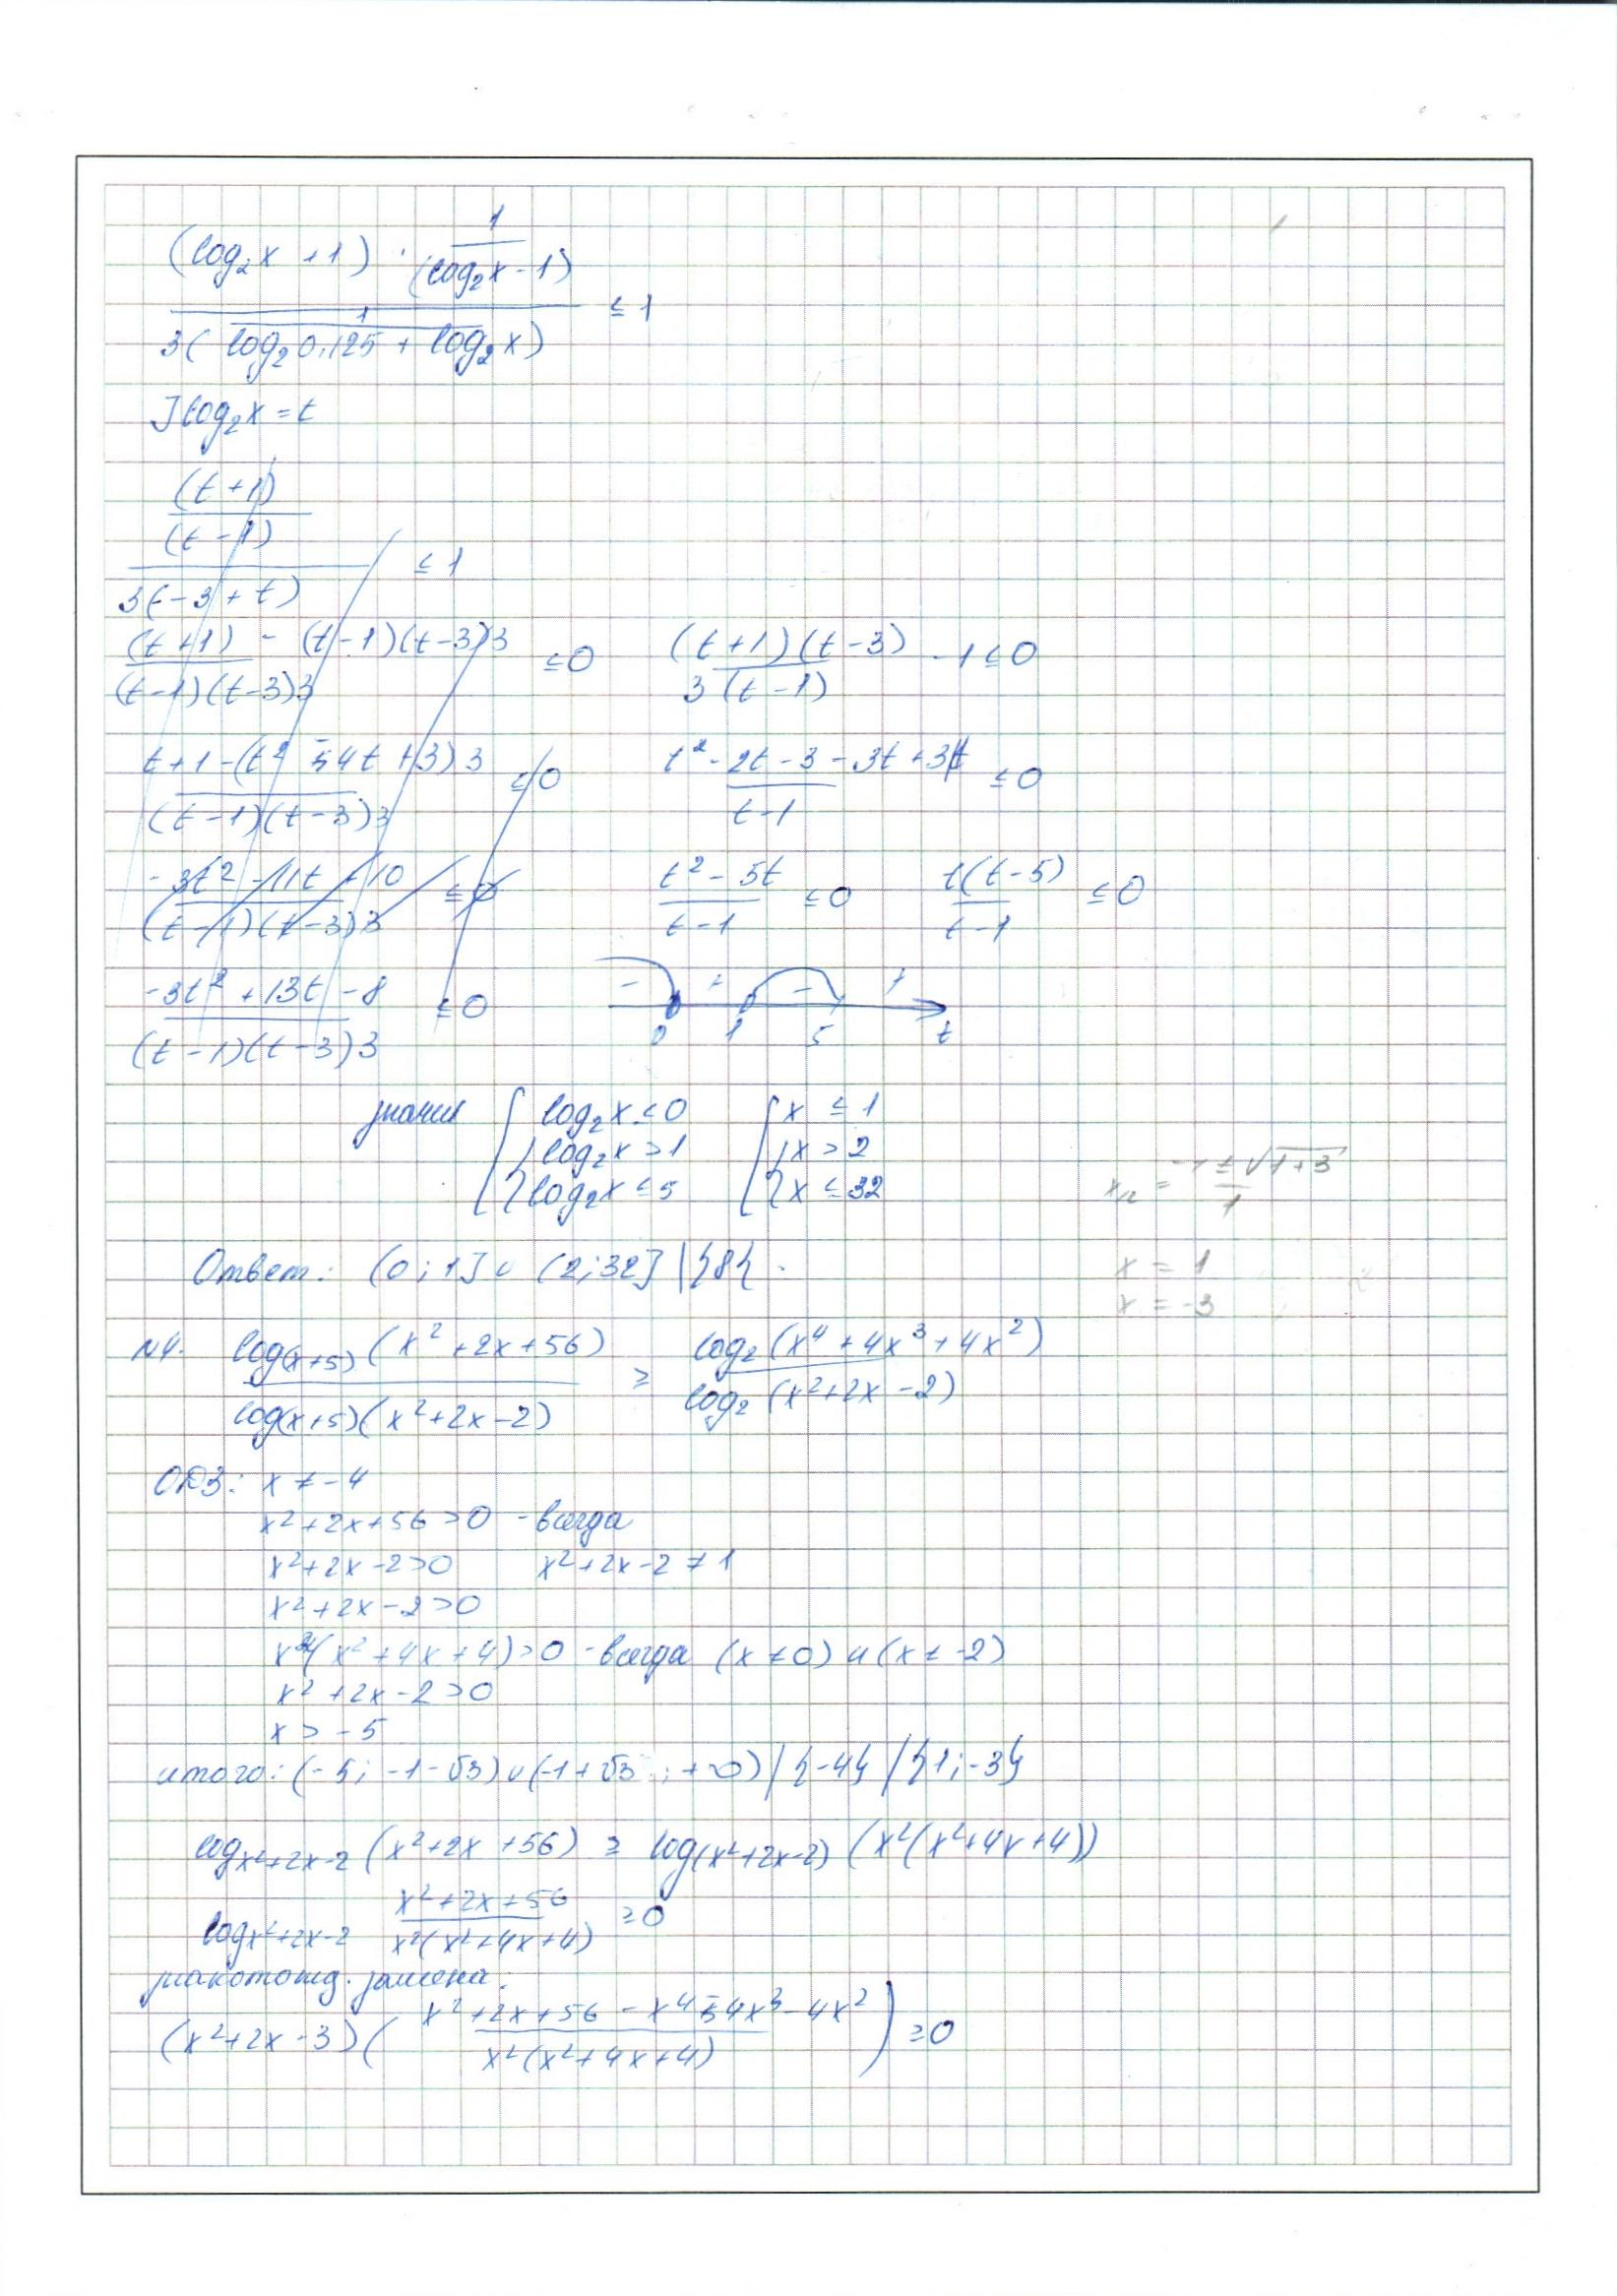 (log₂x + 1) · 1/(log₂x - 1)
≤ 1
3( 1/(log₂0,125 + log₂x)
] log₂x = t
(t+1)
(t-1)
≤ 1
3(-3+t)
(t+1) - (t-1)(t-3)3 / (t-1)(t-3)3 ≤0
(t+1)(t-3) / 3(t-1) -1≤0
t+1-(t² -4t+3)3 / (t-1)(t-3)3 ≤0
t² - 2t - 3 - 3t + 3 / t-1 ≤0
-3t² - 11t + 10 / (t-1)(t-3)3 ≤0
t² - 5t / t-1 ≤0
t(t-5) / t-1 ≤0
-3t² + 13t - 8 / (t-1)(t-3)3 ≤0
- + - +
0 1 5 t
значит [ log₂x ≤ 0 [ x ≤ 1
{ log₂x > 1 { x > 2
log₂x ≤ 5 x ≤ 32
x₁,₂ = -1 ± √(1+3) / 1
Ответ: (0;1] ∪ (2;32] \ {8}.
x = 1
x = -3
N4. log(x+5)(x²+2x+56) / log(x+5)(x²+2x-2) ≥ log₂(x⁴+4x³+4x²) / log₂(x²+2x-2)
ОДЗ: x ≠ -4
x²+2x+56>0 - всегда
x²+2x-2>0 x²+2x-2 ≠ 1
x²+2x-2>0
x²(x²+4x+4)>0 - всегда (x≠0) и (x≠-2)
x²+2x-2>0
x > -5
итого: (-5; -1-√3)∪(-1+√3; +∞) / {-4} / {1;-3}
log x²+2x-2 (x²+2x+56) ≥ log(x²+2x-2) (x²(x²+4x+4))
log x²+2x-2 x²+2x+56 / x²(x²+4x+4) ≥0
знакотожд. замена:
(x²+2x-3)( x²+2x+56-x⁴-4x³-4x² / x²(x²+4x+4) ) ≥0